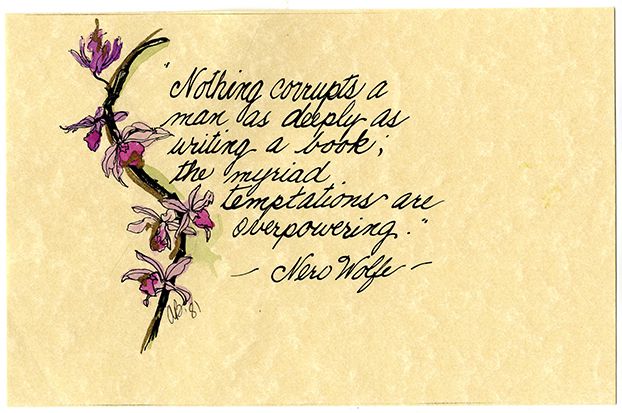 "Nothing corrupts a
man as deeply as
writing a book;
the myriad
temptations are
overpowering."
— Nero Wolfe —